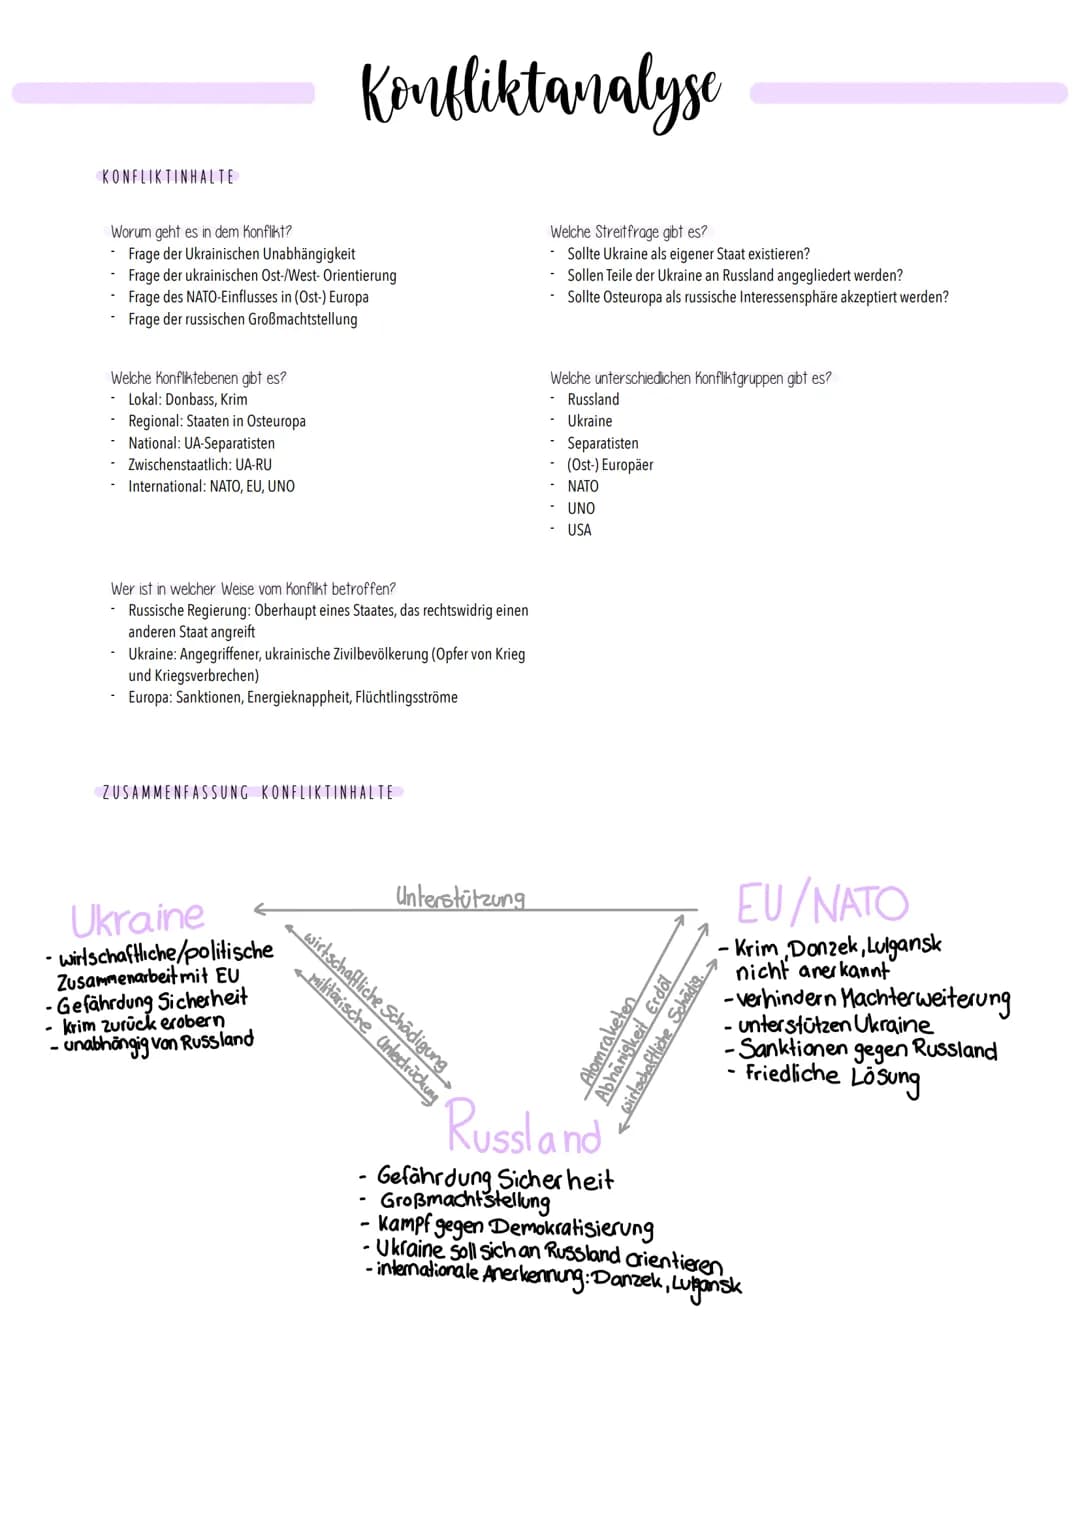 Konfliktanalyse
KONFLIKTINHALTE
Worum geht es in dem Konflikt?
- Frage der Ukrainischen Unabhängigkeit
- Frage der ukrainischen Ost-/West- Orientierung
- Frage des NATO-Einflusses in (Ost-) Europa
- Frage der russischen Großmachtstellung
Welche Streitfrage gibt es?
- Sollte Ukraine als eigener Staat existieren?
- Sollen Teile der Ukraine an Russland angegliedert werden?
- Sollte Osteuropa als russische Interessensphäre akzeptiert werden?
Welche Konfliktebenen gibt es?
- Lokal: Donbass, Krim
- Regional: Staaten in Osteuropa
- National: UA-Separatisten
- Zwischenstaatlich: UA-RU
- International: NATO, EU, UNO
Welche unterschiedlichen Konfliktgruppen gibt es?
- Russland
- Ukraine
- Separatisten
- (Ost-) Europäer
- NATO
- UNO
- USA
Wer ist in welcher Weise vom Konflikt betroffen?
- Russische Regierung: Oberhaupt eines Staates, das rechtswidrig einen
anderen Staat angreift
- Ukraine: Angegriffener, ukrainische Zivilbevölkerung (Opfer von Krieg
und Kriegsverbrechen)
- Europa: Sanktionen, Energieknappheit, Flüchtlingsströme
ZUSAMMENFASSUNG KONFLIKTINHALTE
Ukraine
- wirtschaftliche/politische
Zusammenarbeit mit EU
- Gefährdung Sicherheit
- Krim zurück erobern
- unabhängig von Russland
Unterstützung
wirtschaftliche Schädigung
militärische Unterdrückung
Atomraketen
Abhänigkeit Erdöl
wirtschaftliche Schädig.
EU/NATO
- Krim, Donzek, Lulgansk
nicht anerkannt
- verhindern Machterweiterung
- unterstützen Ukraine
- Sanktionen gegen Russland
- Friedliche Lösung
Russland
- Gefährdung Sicherheit
- Großmachtstellung
- Kampf gegen Demokratisierung
- Ukraine soll sich an Russland orientieren
- internationale Anerkennung: Danzek, Lugansk